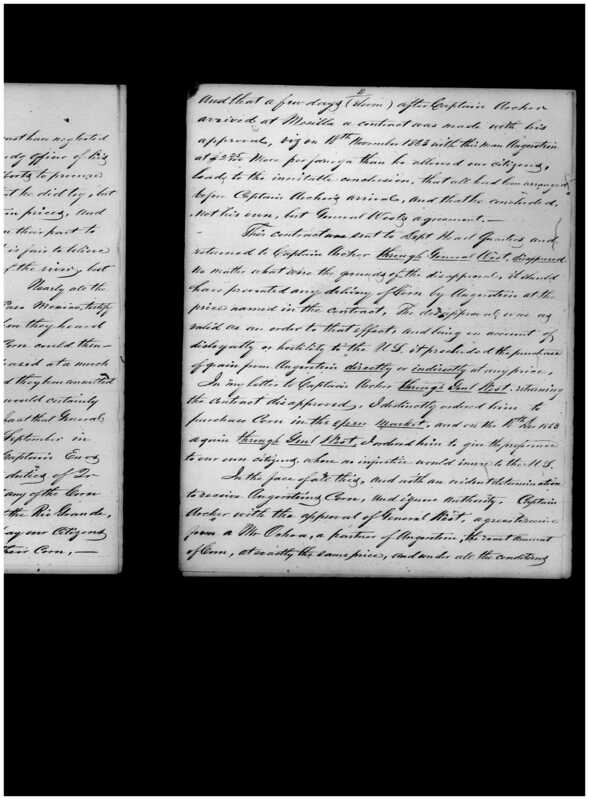 east han neglected
dy office of his
forts to procure
t he did try, but
in prices, and
n their part to
l is fair to believe
of the river, but
Nearly all the
Paso Mexico, testify
len they heard
Corn could then
eased at a much
d they han amounted
would certainly
fact that General
September in
Captain Enos
duties of Qr
any of the Corn
the Rio Grande,
pay our Citizens
their Corn, —
And that a few days (seven) after Captain Archer
arrived at Mesilla a contract was made with his
approval, viz on 10th November 1863 with this man Augustein
at $2.75 more per fanega than he allowed our citizens,
leads to the inevitable conclusion, that all had been arranged
before Captain Archer's arrival, and that he concluded,
not his own, but General West's agreement. —
This contract was sent to Dept Head Quarters and
returned to Captain Archer through General West, disapproved
No matter what were the grounds of the disapproval, it should
have prevented any delivery of Corn by Augustein at the
price named in the contract. The disapproval was as
valid as an order to that effect, and being on account of
disloyalty or hostility to the U.S. it precluded the purchase
of grain from Augustein directly or indirectly at any price,
In my letter to Captain Archer through Genl West returning
the contract disapproved, I distinctly ordered him to
purchase Corn in the open market, and on the 18th Dec 1863
again through Genl West, I ordered him to give the preference
to our own citizens, when no injustice would inure to the U.S.
In the face of all this, and with an evident determination
to receive Augusteins Corn, and ignore authority, Captain
Archer with the approval of General West, agrees to receive
from a Mr Ochoa, a partner of Augustein, the exact amount
of Corn, at exactly the same price, and under all the conditions